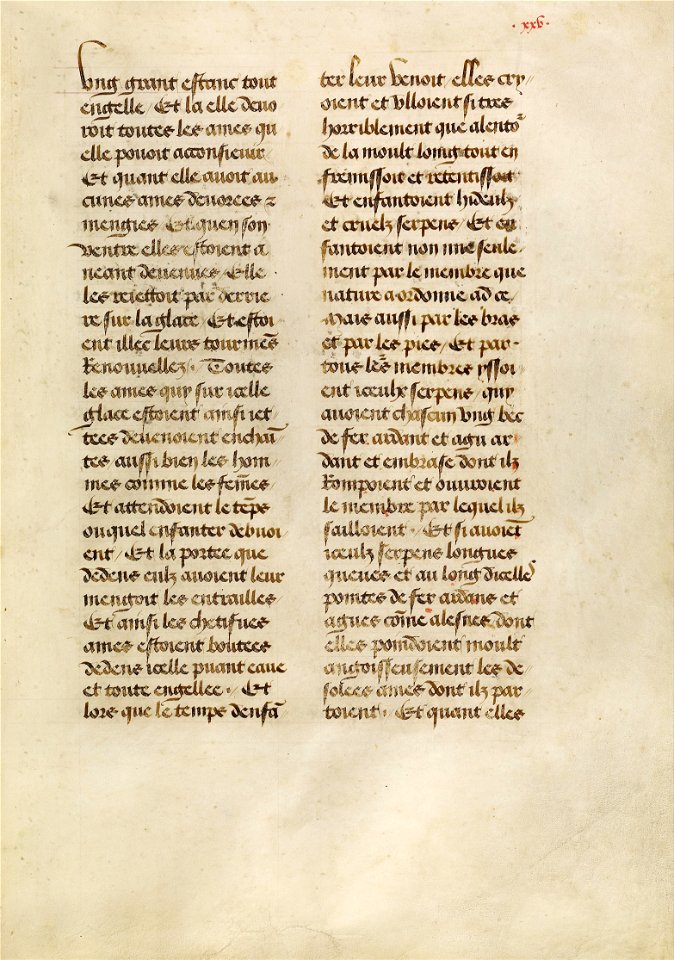 · xxv ·
Ung grant estanc tout
engelle / Et la elle devo /
roit toutes les ames qu
elle povoit acconsieuir /
Et quant elle avoit au /
cunes ames devorees &
mengies / Et quen son /
ventre elles estoient a
neant devenues / Elle
les reiettoit par derrie
re sur la glace / Et estoi
ent illec leurs tourmẽs
Renouvellez · Toutes
les ames quy sur icelle
glace estoient ainsi iet /
tees devenoient enchaĩ
tes aussi bien les hom /
mes comme les fem̃es /
Et attendoient le tẽps
ouquel enfanter debuoi
ent / Et la portee que
dedens eulz avoient leur
mengoit les entrailles /
Et ainsi les chetifves
ames estoient boutees
dedens icelle puant eaue
et toute engellee · / Et
lors que le temps denfã
ter leur venoit / elles cry /
oient et ulloient si tres
horriblement que alento᷑
de la moult loing tout en
fremissoit et retentissoit
Et enfantoient hideulz
et cruelz serpens / Et en
fantoient non mie seule /
ment par le membre que
nature a ordonne ad ce /
Mais aussi par les bras
et par les pies / Et par ·
tous lẽs membres yssoi /
ent iceulx serpens / quy
avoient chascun ung bec
de fer ardant et agu ar /
dant et embrase dont ilz
Rompoient et ouvroient
le membre par lequel ilz
sailloient · / Et si avoiẽt
iceulz serpens longues
queues et au long dicelle᷒
pointes de fer ardans et
agues com̃e alesnes / dont
elles poindoient moult
angoisseusement les de /
solees ames dont ilz par
toient · / Et quant elles